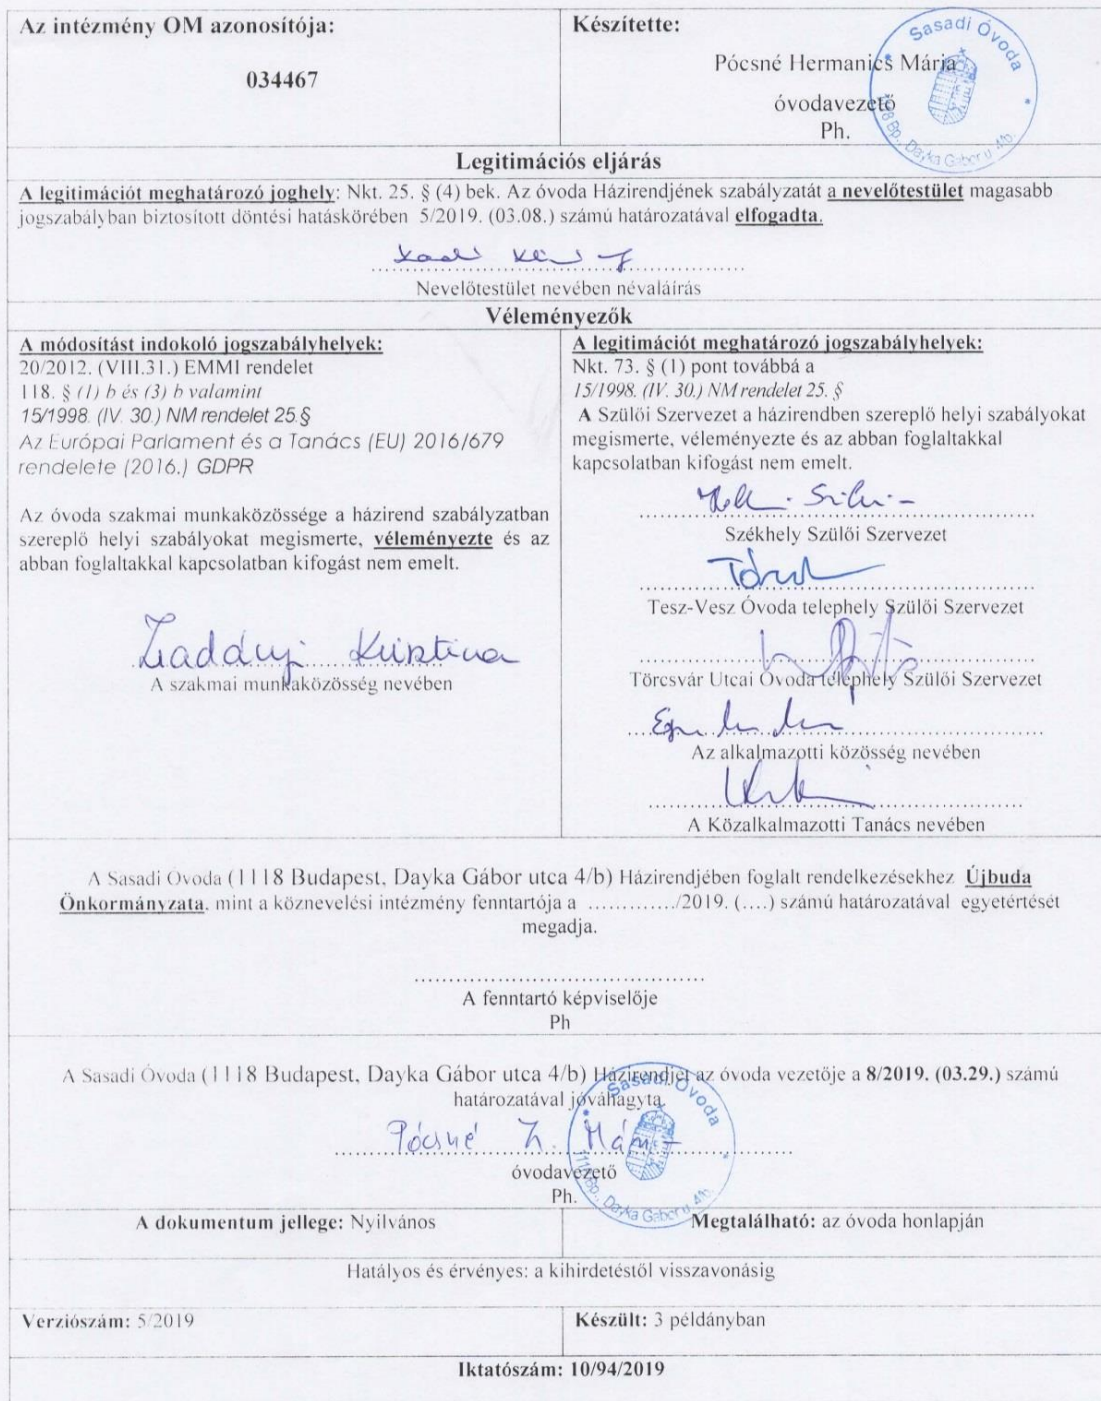 Az intézmény OM azonosítója:
034467
Készítette:
Pócsné Hermanics Mária
óvodavezető
Ph.
Sasadi Óvoda
1118 Bp., Dayka Gábor u. 4/b.
Legitimációs eljárás
A legitimációt meghatározó joghely: Nkt. 25. § (4) bek. Az óvoda Házirendjének szabályzatát a nevelőtestület magasabb
jogszabályban biztosított döntési hatáskörében 5/2019. (03.08.) számú határozatával elfogadta.
Nevelőtestület nevében névaláírás
Véleményezők
A módosítást indokoló jogszabályhelyek:
20/2012. (VIII.31.) EMMI rendelet
118. § (1) b és (3) b valamint
15/1998. (IV. 30.) NM rendelet 25.§
Az Európai Parlament és a Tanács (EU) 2016/679
rendelete (2016.) GDPR
Az óvoda szakmai munkaközössége a házirend szabályzatban
szereplő helyi szabályokat megismerte, véleményezte és az
abban foglaltakkal kapcsolatban kifogást nem emelt.
Krisztina
A szakmai munkaközösség nevében
A legitimációt meghatározó jogszabályhelyek:
Nkt. 73. § (1) pont továbbá a
15/1998. (IV. 30.) NM rendelet 25. §
A Szülői Szervezet a házirendben szereplő helyi szabályokat
megismerte, véleményezte és az abban foglaltakkal
kapcsolatban kifogást nem emelt.
Székhely Szülői Szervezet
Tesz-Vesz Óvoda telephely Szülői Szervezet
Törcsvár Utcai Óvoda telephely Szülői Szervezet
Az alkalmazotti közösség nevében
A Közalkalmazotti Tanács nevében
A Sasadi Óvoda (1118 Budapest, Dayka Gábor utca 4/b) Házirendjében foglalt rendelkezésekhez Újbuda
Önkormányzata, mint a köznevelési intézmény fenntartója a ............./2019. (....) számú határozatával egyetértését
megadja.
A fenntartó képviselője
Ph
A Sasadi Óvoda (1118 Budapest, Dayka Gábor utca 4/b) Házirendjét az óvoda vezetője a 8/2019. (03.29.) számú
határozatával jóváhagyta.
Pócsné H. Mária
óvodavezető
Ph.
Sasadi Óvoda
1118 Bp., Dayka Gábor u. 4/b.
A dokumentum jellege: Nyilvános
Megtalálható: az óvoda honlapján
Hatályos és érvényes: a kihirdetéstől visszavonásig
Verziószám: 5/2019
Készült: 3 példányban
Iktatószám: 10/94/2019